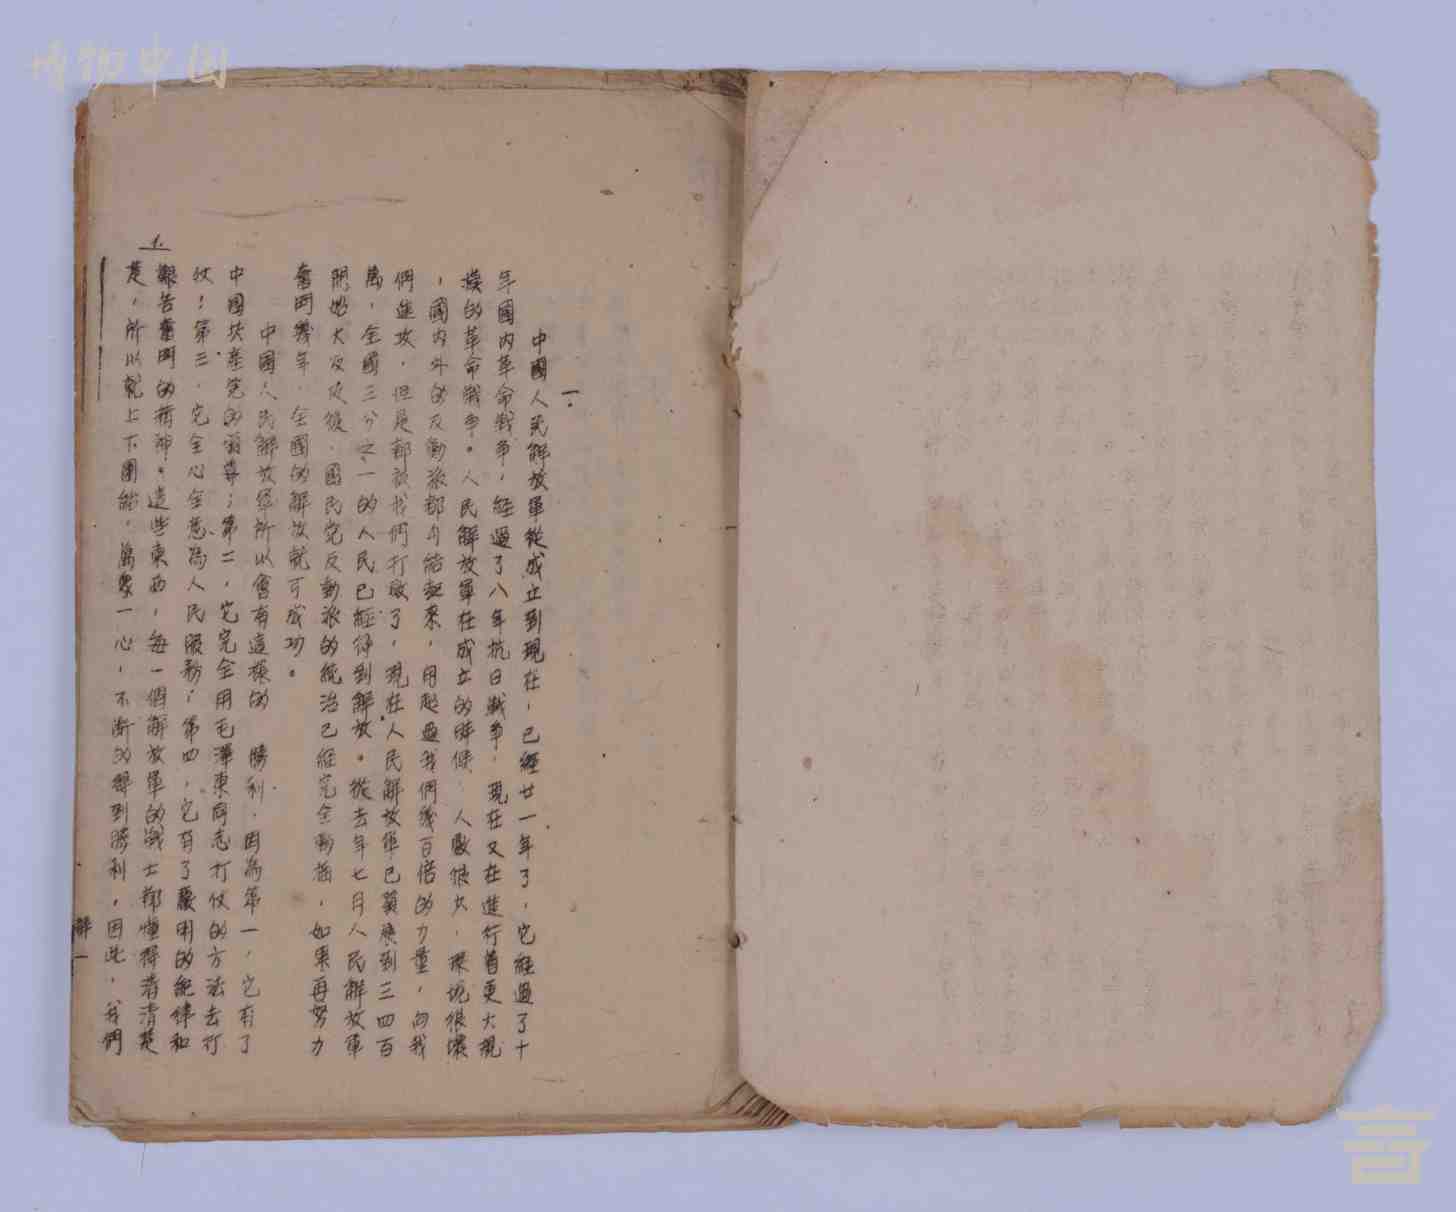 博物中国
一.
中國人民解放軍從成立到現在，已經廿一年了，它經過了十
年國内革命戰爭，經過了八年抗日戰爭，現在又在進行着更大規
模的革命戰爭。人民解放軍在成立的時候，人數很少，環境很壞
，國内外的反動派都勾結起來，用超過我們幾百倍的力量，向我
們進攻，但是都被我們打敗了，現在人民解放軍已發展到三四百
萬，全國三分之一的人民已經得到解放。從去年七月人民解放軍
開始大反攻後，國民党反動派的統治已經完全動摇，如果再努力
奮鬥幾年，全國的解放就可成功。
中國人民解放軍所以會有這樣的 勝利，因為第一，它有了
中國共產党的領導；第二，它完全用毛澤東同志打仗的方法去打
仗；第三，它全心全意為人民服務；第四，它有了嚴明的紀律和
艱苦奮鬥的精神。這些東西，每一個解放軍的戰士都懂得清清楚
楚，所以就上下團結，萬眾一心，不斷的得到勝利。因此，我們
1.
解一